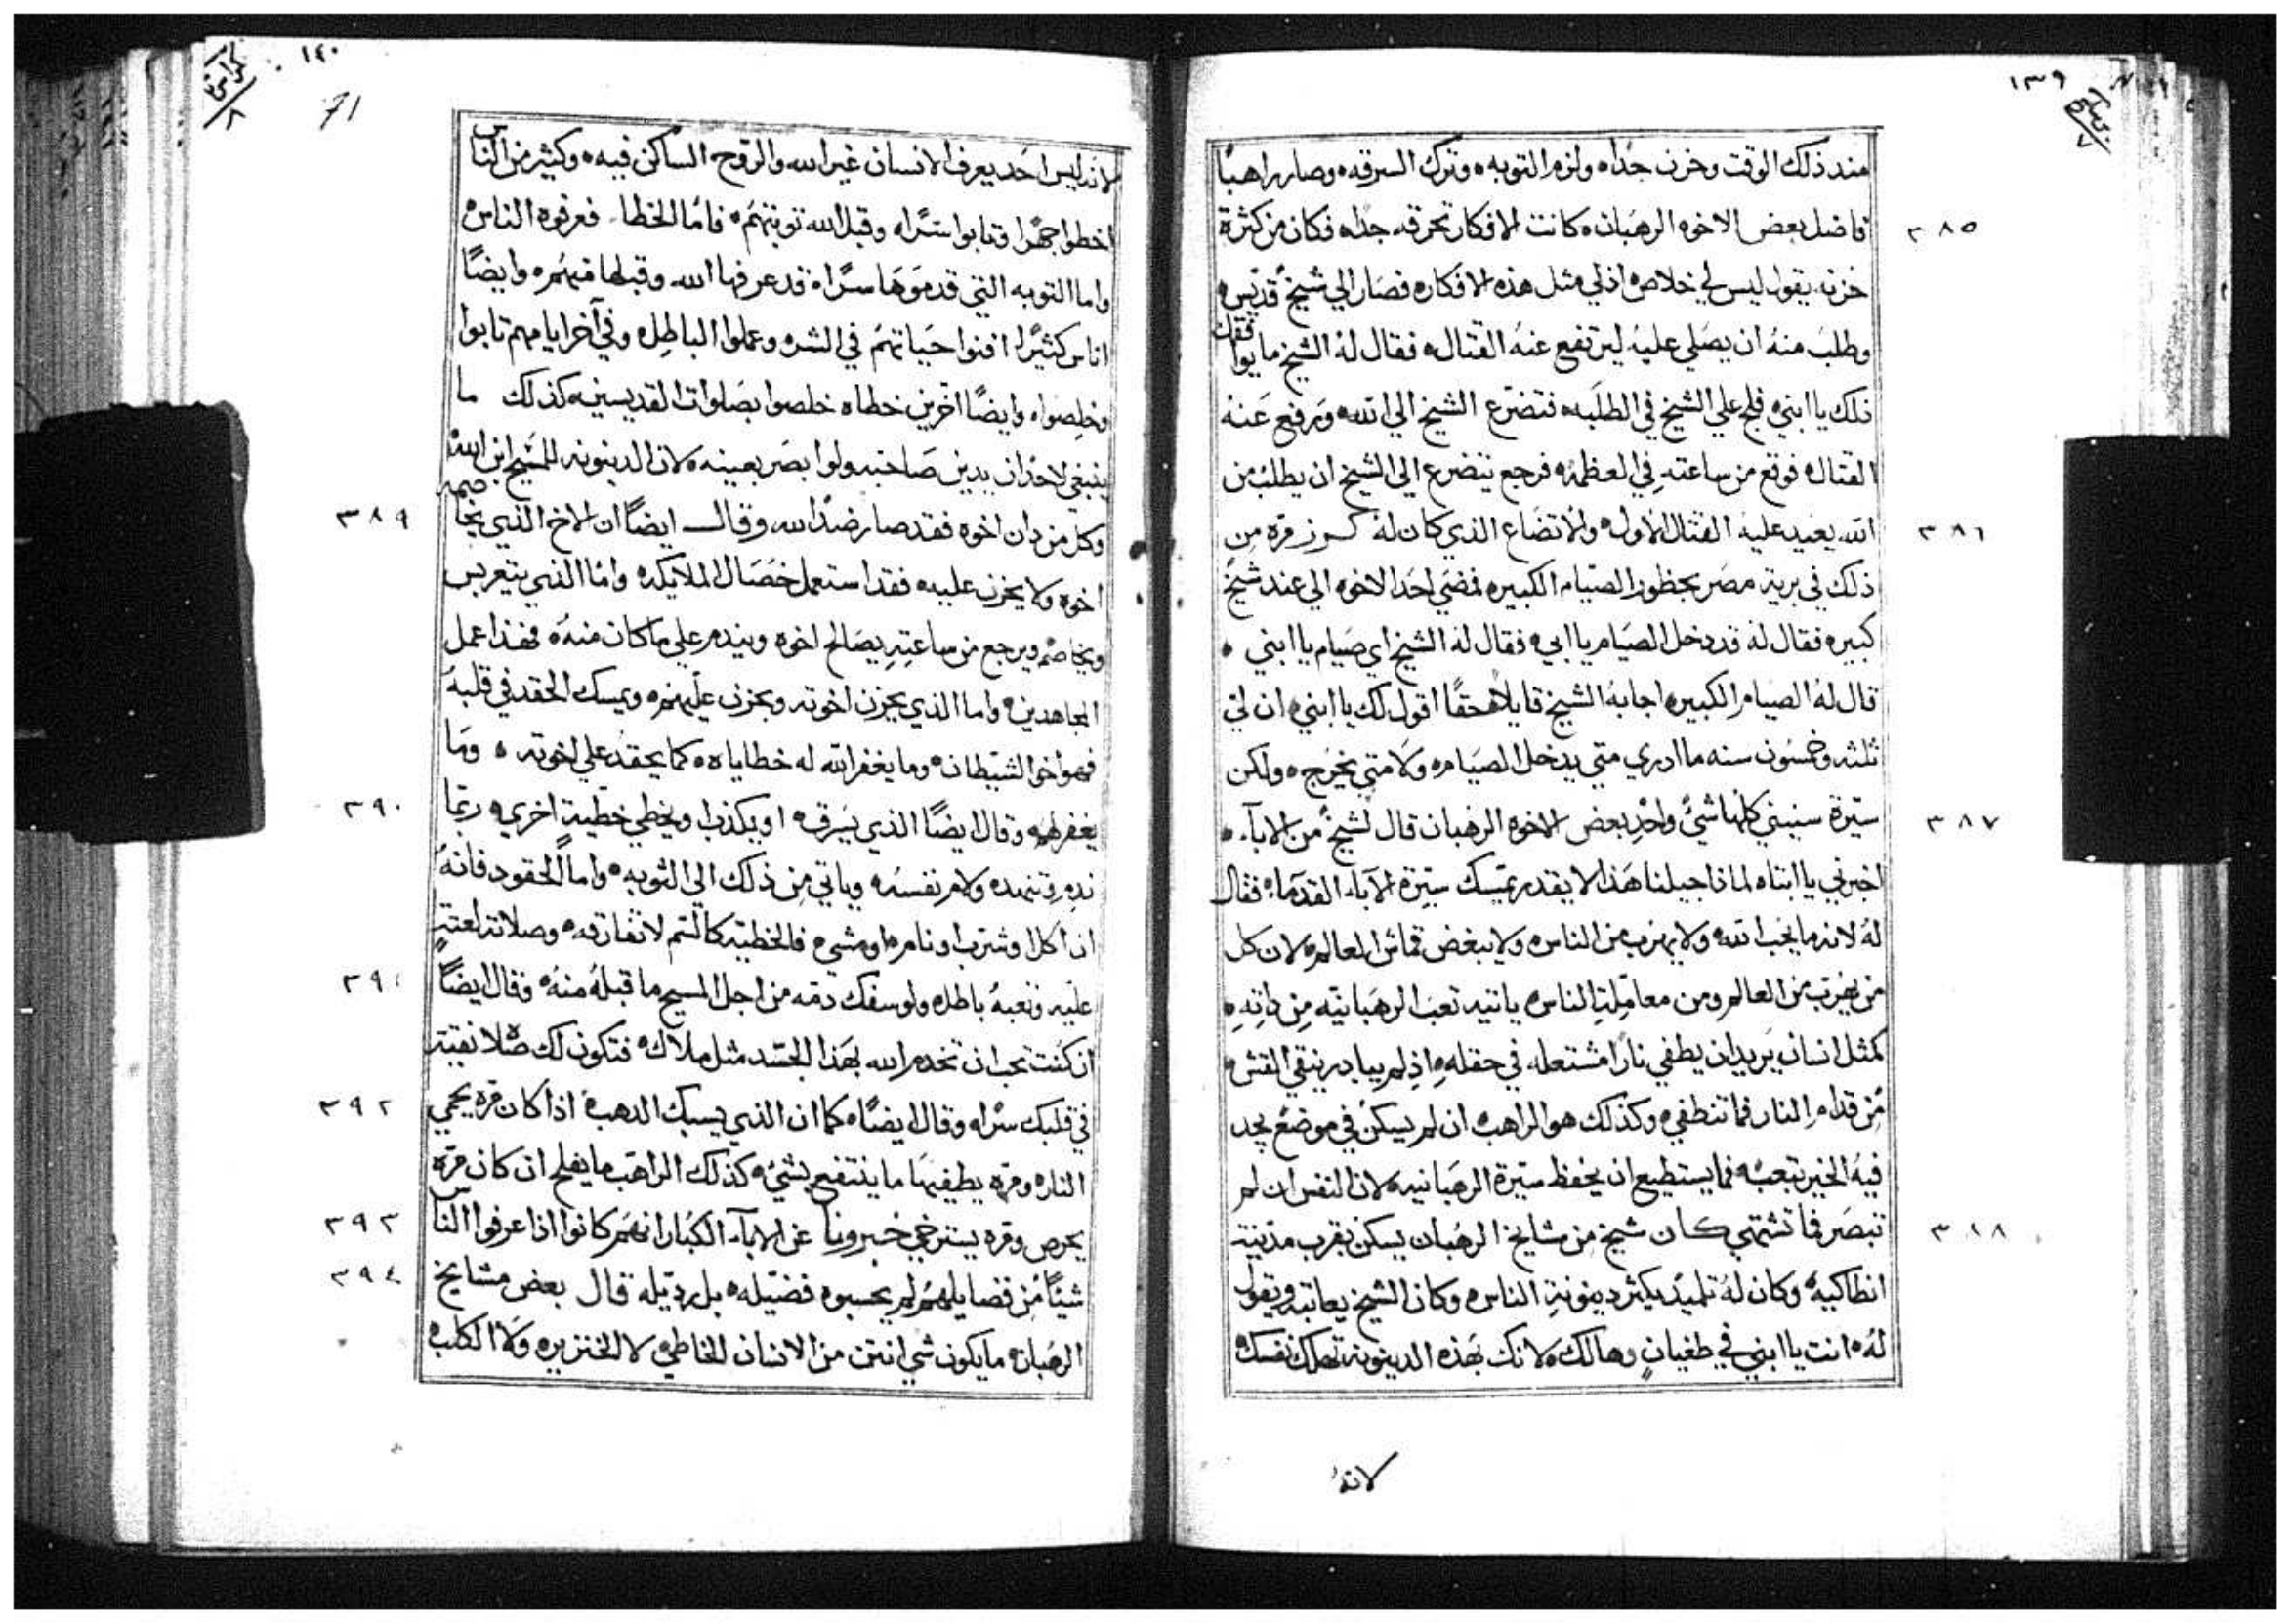 ١٣٩
كراس
٧
مند ذلك الوقت وحزن جدًا ه ولزم التوبه ه وترك السرقه ه وصار راهبًا
٣٨٥
فاضل بعض الاخوه الرهبان ه كانت الافكار تحرقه جدًا ه فكان من كثرة
حزنه يقول ليس لي خلاص ه اذ لي مثل هذه الافكار ه فصار الي شيخ قديس ه
وطلب منه ان يصلي عليه ليرتفع عنه القتال ه فقال له الشيخ ما يوافقك
ذلك يا ابني ه فلج علي الشيخ في الطلبه ه فتضرع الشيخ الي الله ه ورفع عنه
القتال ه فوقع من ساعته في العظمه ه فرجع يتضرع الي الشيخ ان يطلب من
٣٨٦
الله يعيد عليه القتال الاول ه والاتضاع الذي كان له كرز مره من
ذلك في برية مصر بحظور الصيام الكبير ه فمضي احد الاخوه الي عند شيخ
كبير ه فقال له قد دخل الصيام يا ابي ه فقال له الشيخ اي صيام يا ابني ه
قال له الصيام الكبير ه اجابه الشيخ قايلاً ه حقًا اقول لك يا ابني ه ان لي
ثلثه وخمسون سنه ما ادري متي يدخل الصيام ه ولا متي يخرج ه ولكن
٣٨٧
سيرة سنيني كلها شئ واحد بعض الاخوه الرهبان قال لشيخ من الابآء ه
اخبرني يا ابتاه لماذا جيلنا هذا لا يقدر يمسك سيرة الابآء القدماء ه فقال
له لانه ما يحب الله ه ولا يهرب من الناس ه ولا يبغض قماش العالم ه لان كل
من يهرب من العالم ومن معاملة الناس ه ياتيه تعب الرهبانيه من ذاته ه
كمثل انسان يريد ان يطفي نارًا مشتعله في حقله ه اذ لم يبادر ينقي القش ه
من قدام النار فما تنطفي ه وكذلك هو الراهب ه ان لم يسكن في موضع يجد
فيه الخبز بتعب ه فما يستطيع ان يحفظ سيرة الرهبانيه ه لان النفس ان لم
٣٨٨
تبصر فما تشتهي كان شيخ من مشايخ الرهبان يسكن بقرب مدينة
انطاكيه ه وكان له تلميذ يكثر دينونة الناس ه وكان الشيخ يعاتبه ويقول
له ه انت يا ابني في طغيان وهالك ه لانك بهذه الدينونة تهلك نفسك ه
لانه
١٤٠
كراس
٨
71
لانه ليس احد يعرف الانسان غير الله والروح الساكن فيه ه وكثير من الناس
اخطوا جهرًا وتابوا سرًا ه وقبل الله توبتهم ه فاما الخطا فعرفوه الناس ه
واما التوبه التي قدموها سرًا ه قد عرفها الله وقبلها منهم ه وايضًا
اناس كثيرًا افنوا حياتهم في الشر ه وعملوا الباطل ه وفي آخر ايامهم تابوا
وخلصوا ه وايضًا اخرين خطاه خلصوا بصلوات القديسين ه كذلك ما
ينبغي لاحد ان يدين صاحبه ولوا بصر بعينه ه لان الدينونه للمسيح ابن الله ه
٣٨٩
وكل من دان اخوه فقد صار ضدًا لله وقال ايضًا ان الاخ الذي يخاصمه
اخوه ولا يحزن عليه ه فقد استعمل خصال الملايكه ه واما الذي يتعربس
ويخاصم ويرجع من ساعته يصالح اخوه ويندم علي ما كان منه ه فهذا عمل
المجاهدين ه واما الذي يحزن اخوته ويحزن عليهم ه ويمسك الحقد في قلبه
فهو اخو الشيطان ه وما يغفر الله له خطاياه ه كما يحقد علي اخوته ه وما
٣٩٠
يغفر لهم ه وقال ايضًا الذي يسرق ه او يكذب ه ويخطي خطية اخري ه ربما
ندم وتنهد ه ولام نفسه ه وياتي من ذلك الي التوبه ه واما الحقود فانه
اذ اكل او شرب او نام ه او مشي ه فالخطيه كالسم لا تفارقه ه وصلاته لعنتٍ
٣٩١
عليه وتعبه باطل ه ولو سفك دمه من اجل المسيح ما قبله منه ه وقال ايضًا
ان كنت تحب ان تخدم الله بهذا الجسد مثل ملاك ه فتكون لك صلا نقية
٣٩٢
في قلبك سرًا ه وقال ايضًا ه كما ان الذي يسبك الدهب ه اذا كان مره يحمي
النار ه ومره يطفيها ما ينتفع بشي ه كذلك الراهب ما يفلح ان كان مره
٣٩٣
يحرص ومره يسترخي خبرونا عن الابآء الكبار انهم كانوا اذا عرفوا الناس
٣٩٤
شيئًا من فضايلهم لم يحسبوه فضيله ه بل رديله قال بعض مشايخ
الرهبان ه ما يكون شي انتن من الانسان الخاطي ه لا الخنزير ه ولا الكلب ه